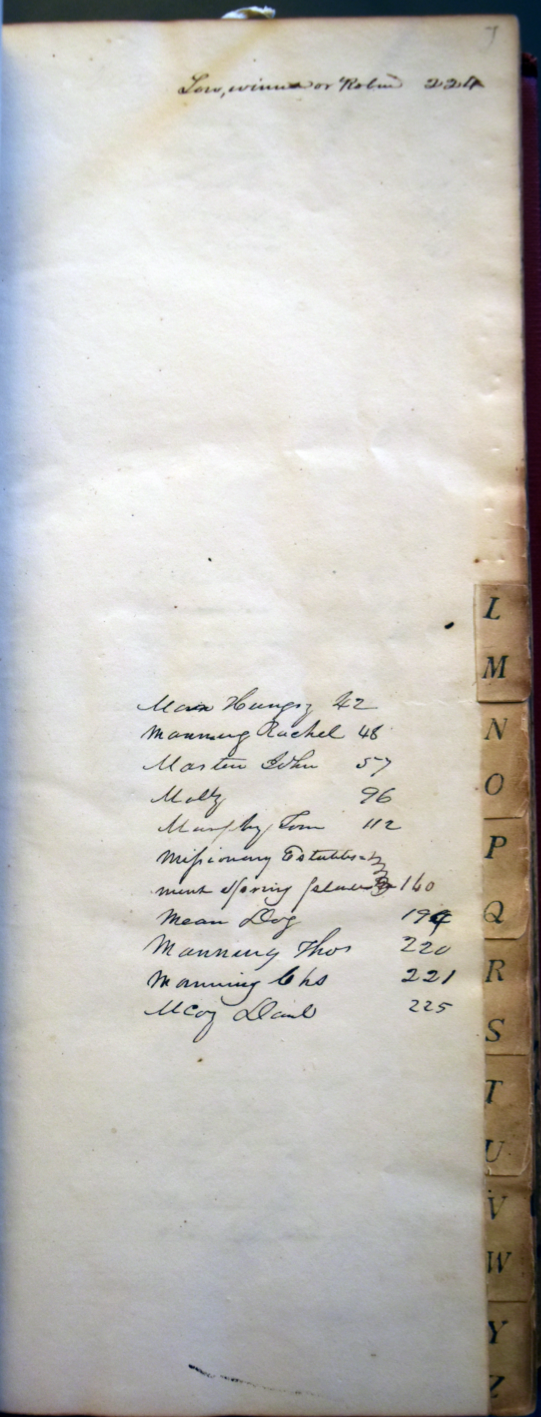 or Robin 224
Man Hungry 42
Manning Rachel 48
Martin John 57
Molly 96
Murphy Tom 112
Missionary Establish
ment Spring place 160
Mean Dog 194
Manning Thos 220
Manning Chs 221
McCoy Danl 225
L
M
N
O
P
Q
R
S
T
U
V
W
Y
Z